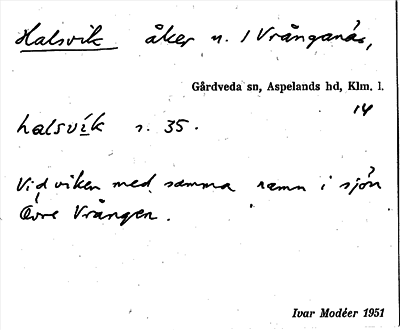 Halsvik åker n. 1 Vrånganäs,
Gårdveda sn, Aspelands hd, Klm. l.
14
halsvik s. 35.
Vid viken med samma namn i sjön
Övre Vrången.
Ivar Modéer 1951